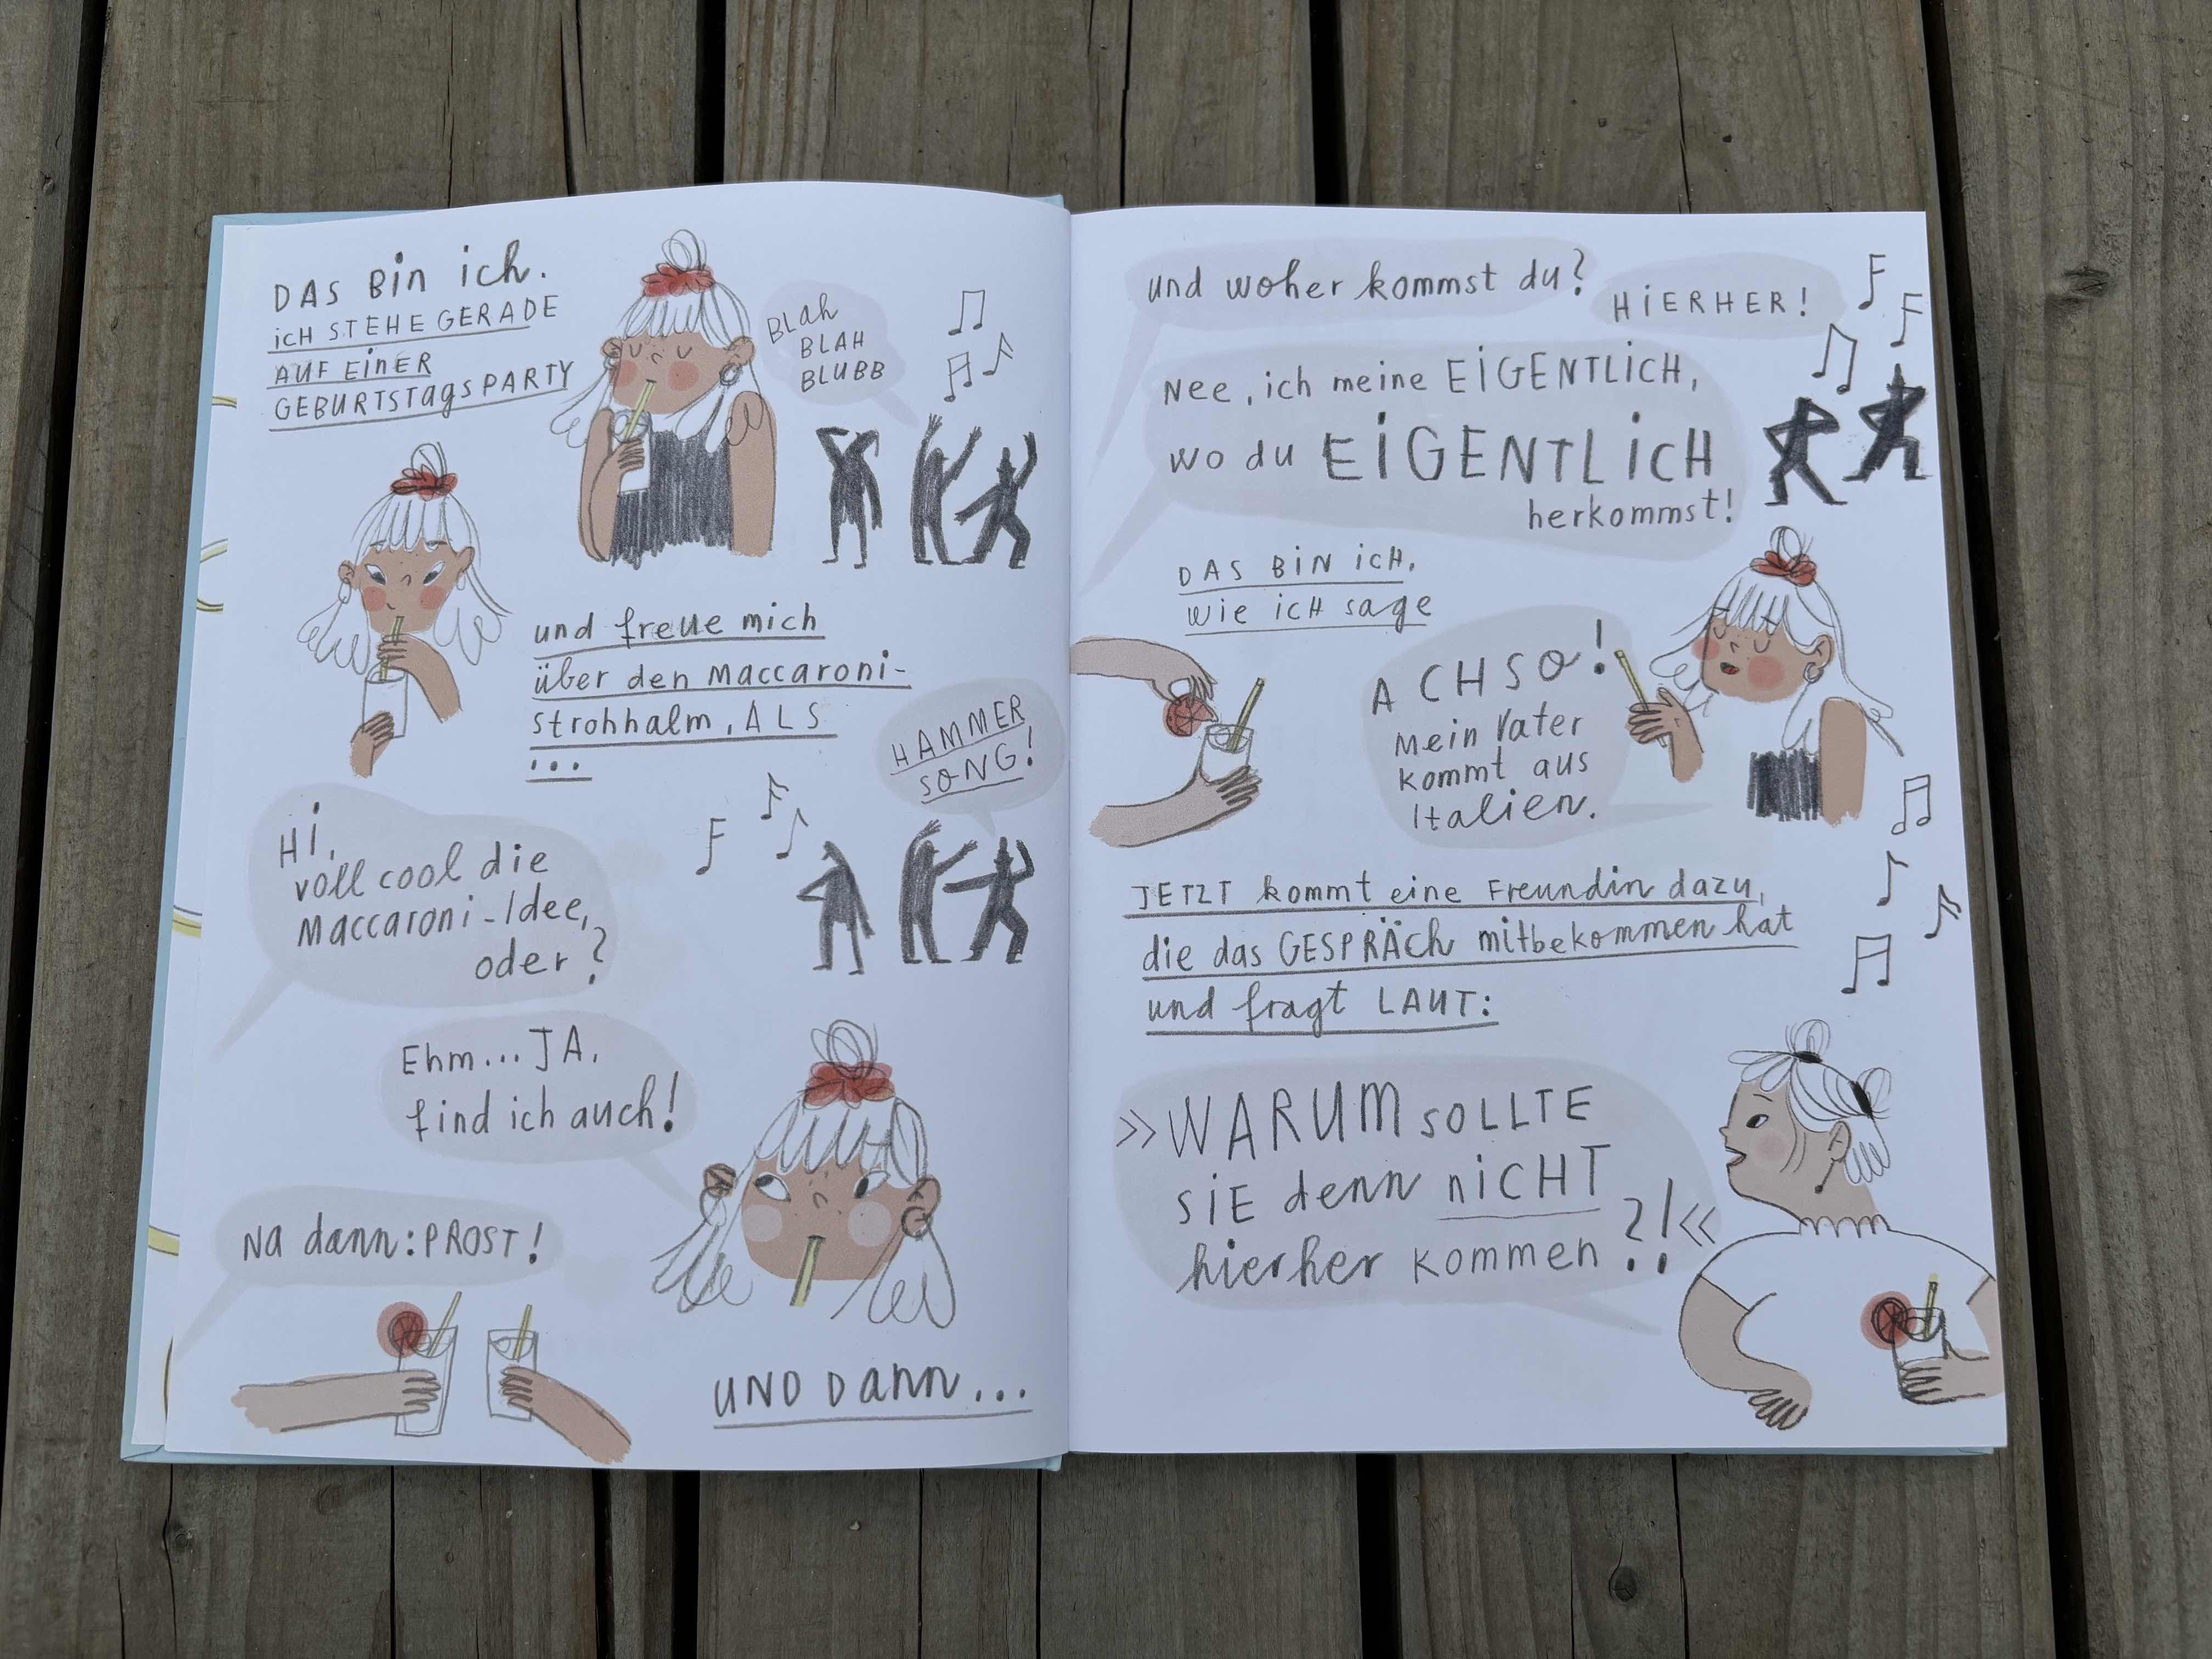 DAS Bin ich.
ich STEHE GERADE
AUF EinER
GEBURTSTAgsPARTY
BLah
BLAH
BLUBB
und freue mich
über den Maccaroni-
strohhalm, ALS
...
HAMMER
SONG!
Hi,
voll cool die
Maccaroni-Idee,
oder?
Ehm... JA,
find ich auch!
Na dann: PROST!
UND Dann...
und woher kommst du?
HiERHER!
Nee, ich meine EiGENTLiCH,
wo du EiGENTLiCH
herkommst!
DAS BiN icH,
wie icH sage
ACHSO!
Mein Vater
kommt aus
Italien.
JETZT kommt eine Freundin dazu,
die das GESPRÄCh mitbekommen hat
und fragt LAUT:
»WARUM SOLLTE
SiE denn niCHT
hierher kommen?!«